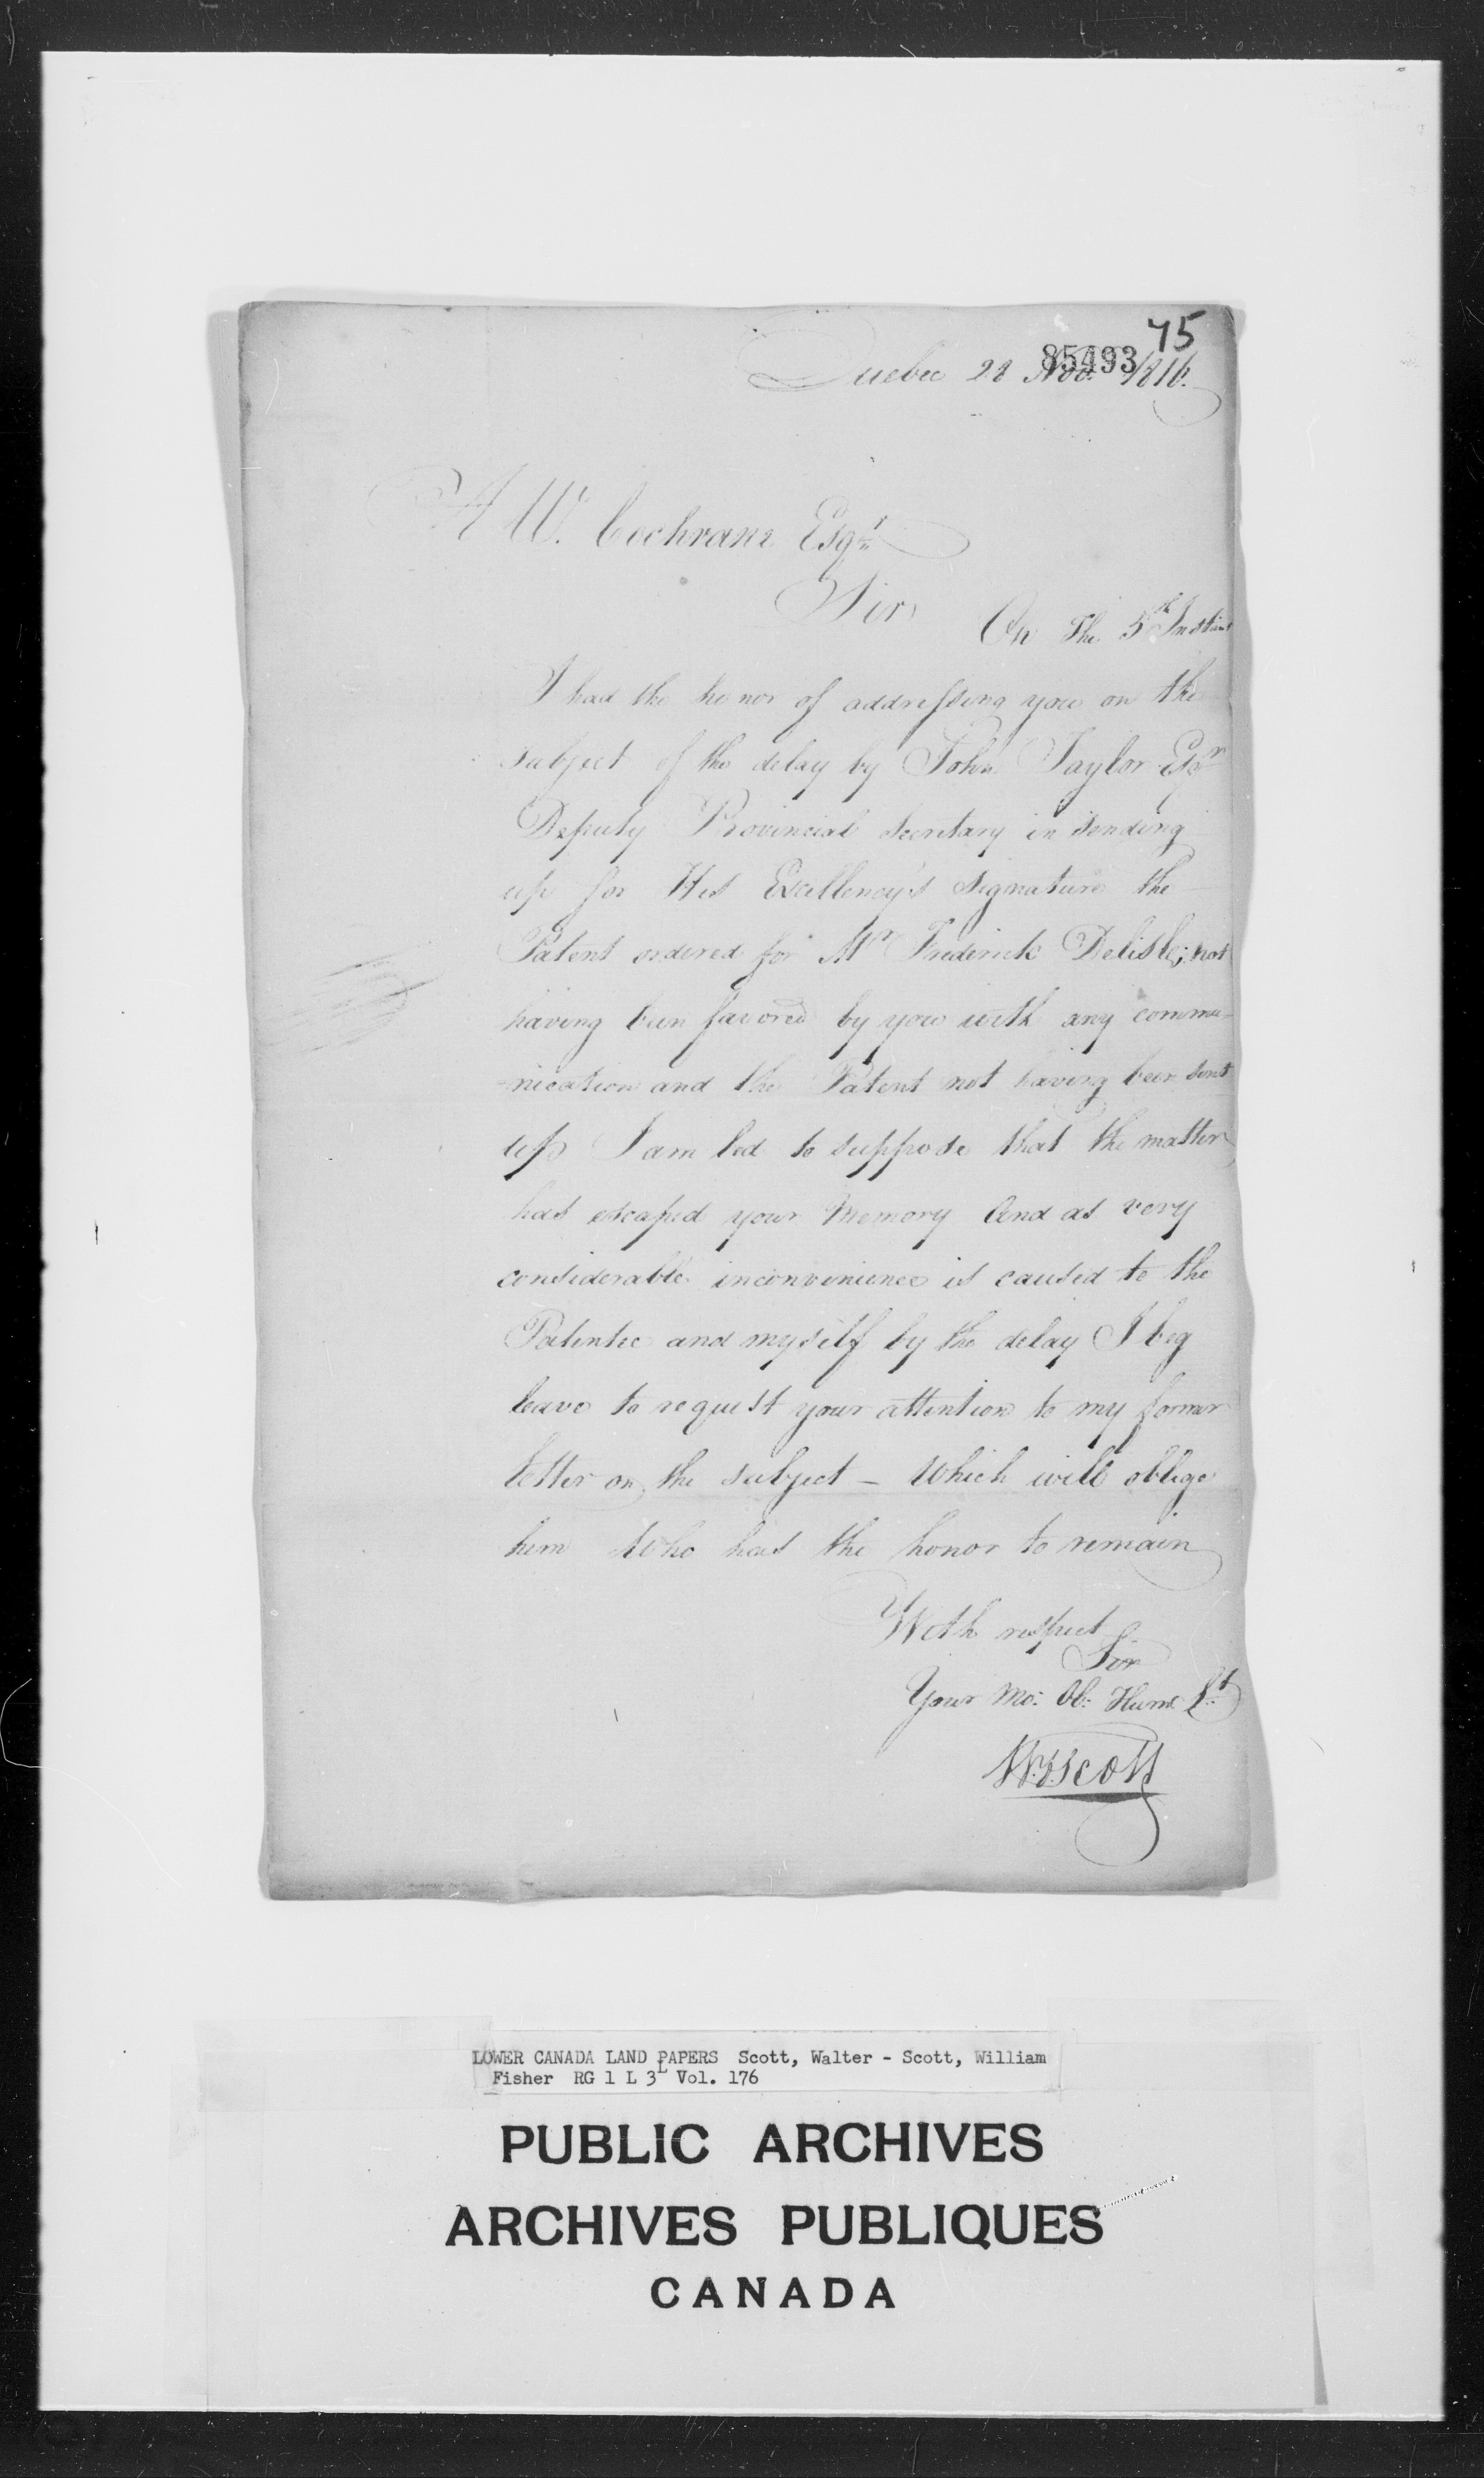 75
85493
Quebec 28 Nov. 1816.
A W. Cochrane Esqr
Sir
On the 5th Instant
I had the honor of addressing you on the
subject of the delay by John Taylor Esqr
Deputy Provincial Secretary in sending
up for His Excellency's signature the
Patent ordered for Mr Frederick Delisle; not
having been favored by you with any commu-
-nication and the Patent not having been sent
up I am led to suppose that the matter
has escaped your Memory And as very
considerable inconvenience is caused to the
Patentee and myself by the delay I beg
leave to request your attention to my former
letter on the subject – Which will oblige
him Who has the honor to remain
With respect
Sir
Your Mo: Ob: Hume St
W.F. Scott
LOWER CANADA LAND PAPERS Scott, Walter - Scott, William
Fisher RG 1 L 3L Vol. 176
PUBLIC ARCHIVES
ARCHIVES PUBLIQUES
CANADA